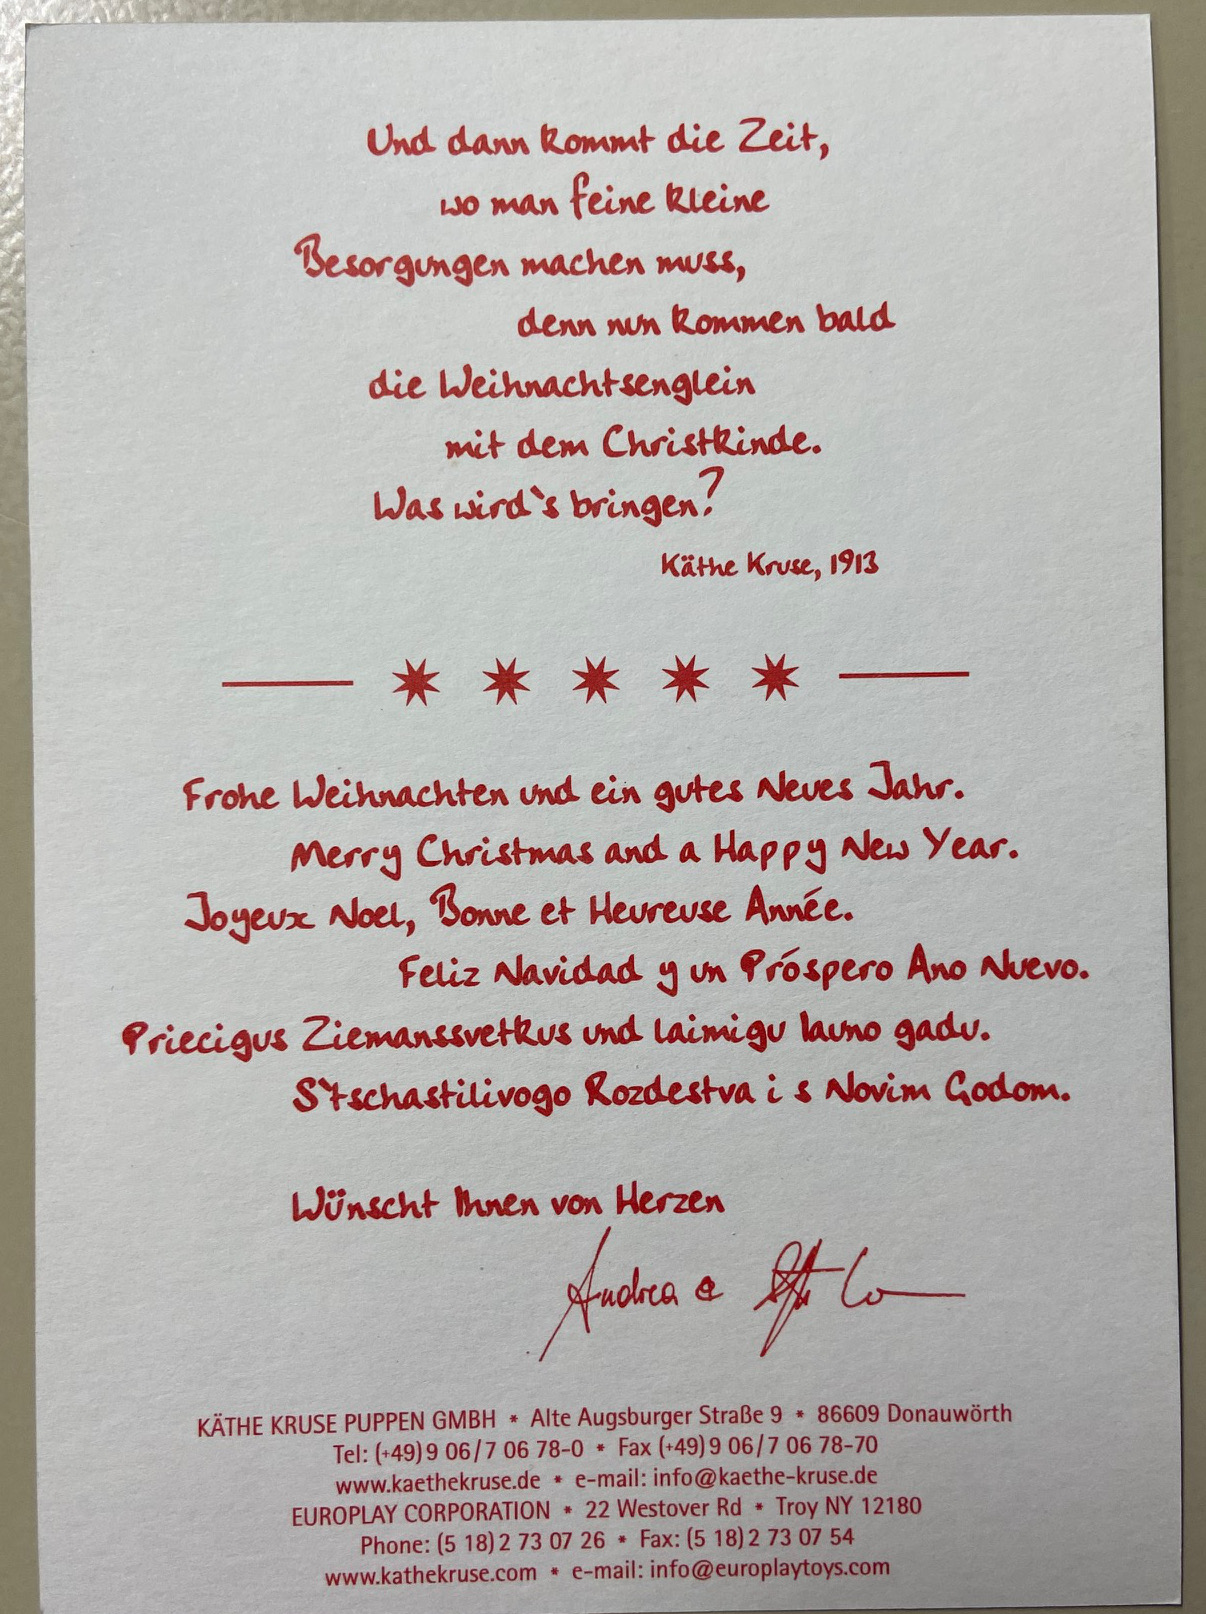 Und dann kommt die Zeit,
wo man feine kleine
Besorgungen machen muss,
denn nun kommen bald
die Weihnachtsenglein
mit dem Christkinde.
Was wird`s bringen?
Käthe Kruse, 1913
Frohe Weihnachten und ein gutes Neues Jahr.
Merry Christmas and a Happy New Year.
Joyeux Noel, Bonne et Heureuse Année.
Feliz Navidad y un Próspero Ano Nuevo.
Priecigus Ziemanssvetkus und laimigu launo gadu.
S'tschastilivogo Rozdestva i s Novim Godom.
Wünscht Ihnen von Herzen
Andrea &
KÄTHE KRUSE PUPPEN GMBH * Alte Augsburger Straße 9 * 86609 Donauwörth
Tel: (+49) 9 06/7 06 78-0 * Fax (+49) 9 06/7 06 78-70
www.kaethekruse.de * e-mail: info@kaethe-kruse.de
EUROPLAY CORPORATION * 22 Westover Rd * Troy NY 12180
Phone: (5 18) 2 73 07 26 * Fax: (5 18) 2 73 07 54
www.kathekruse.com * e-mail: info@europlaytoys.com